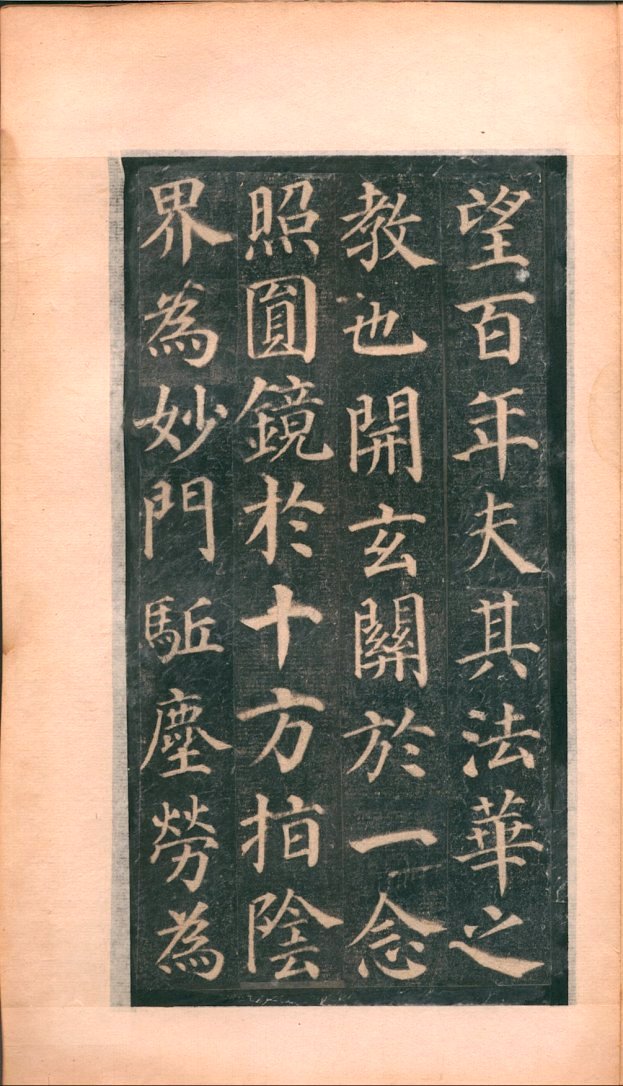 望百年夫其法華之
教也開玄關於一念
照圓鏡於十方指陰
界為妙門駈塵勞為